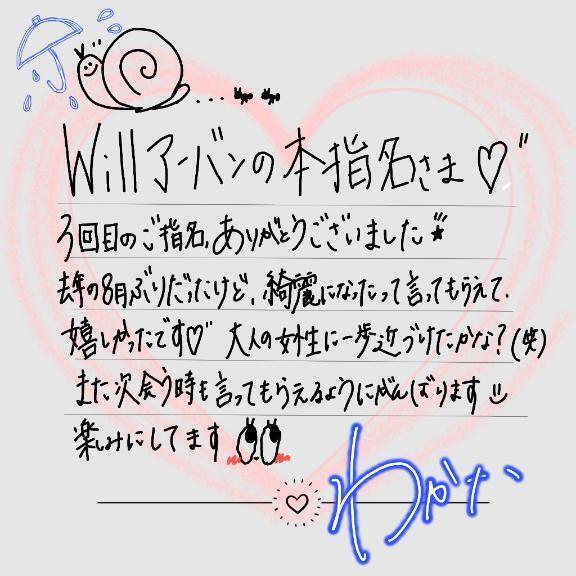 Willアーバンの本指名さま♡"
3回目のご指名、ありがとうございました
去年の8月ぶりだったけど、綺麗になったって言ってもらえて、
嬉しかったです♡ 大人の女性に一歩近づけたかな?(笑)
また次会う時も言ってもらえるようにがんばります
楽しみにしてます
わかな